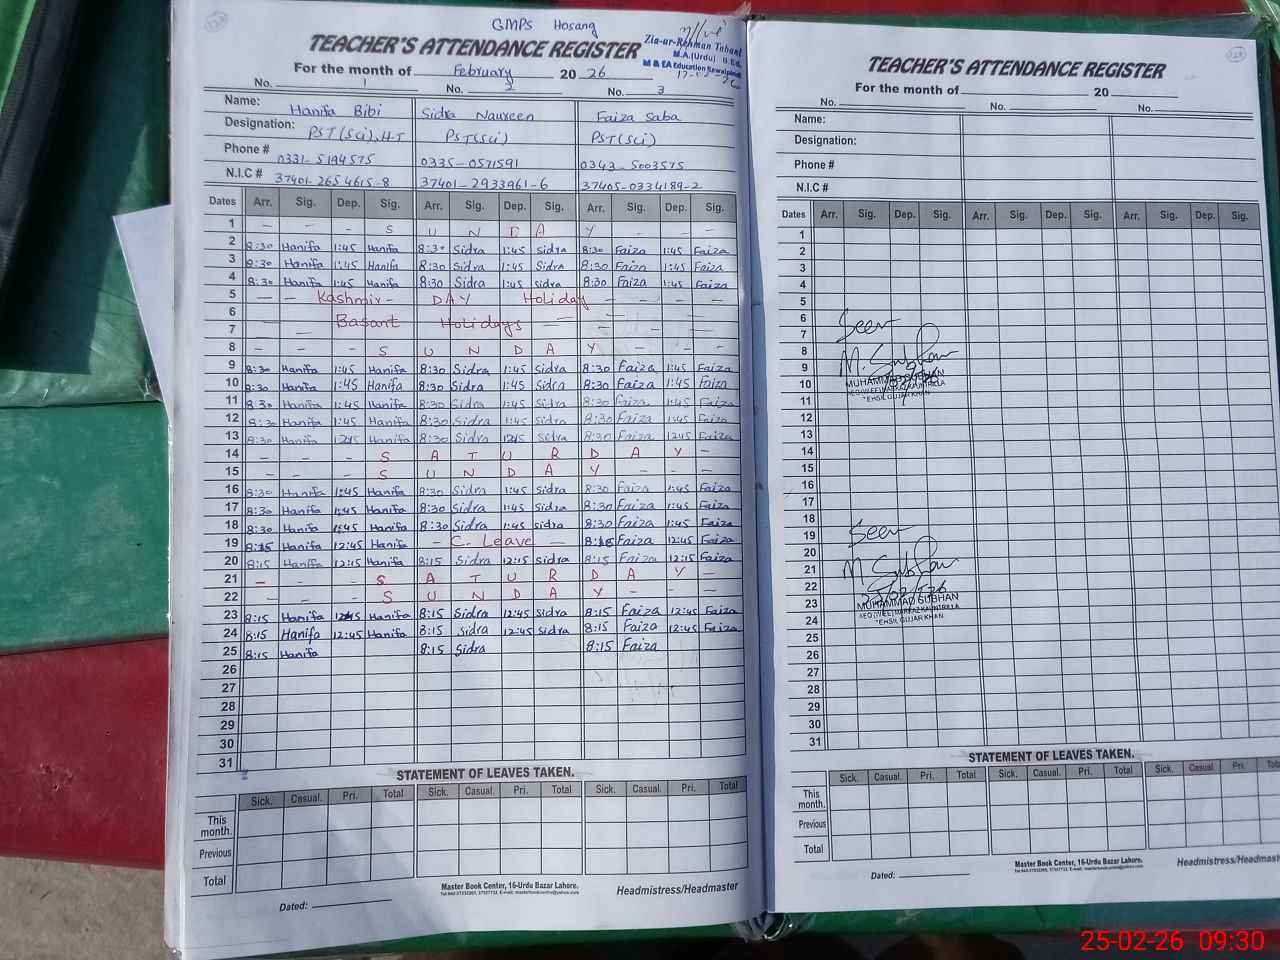 GMPS Hosang
TEACHER'S ATTENDANCE REGISTER
Zia-ur-Rehman Tabani
M.A.(Urdu) B.Ed.
M & EA Education Rawalpindi
For the month of February 20 26
No. 1 No. 2 No. 3
Name: Hanifa Bibi Sidra Naureen Faiza Saba
Designation: PST(Sci), H-T PST(Sci) PST(Sci)
Phone # 0331-5194575 0335-0571591 0343-5003575
N.I.C # 37401-2654615-8 37401-2933961-6 37405-0334189-2
Dates Arr. Sig. Dep. Sig. Arr. Sig. Dep. Sig. Arr. Sig. Dep. Sig.
1 - - - S U N D A Y - - -
2 8:30 Hanifa 1:45 Hanifa 8:30 Sidra 1:45 sidra 8:30 Faiza 1:45 Faiza
3 8:30 Hanifa 1:45 Hanifa 8:30 Sidra 1:45 Sidra 8:30 Faiza 1:45 Faiza
4 8:30 Hanifa 1:45 Hanifa 8:30 Sidra 1:45 sidra 8:30 Faiza 1:45 Faiza
5 - - Kashmir - DAY Holiday - - - -
6 Basant Holidays
7
8 - - - S U N D A Y - - -
9 8:30 Hanifa 1:45 Hanifa 8:30 Sidra 1:45 sidra 8:30 Faiza 1:45 Faiza
10 8:30 Hanifa 1:45 Hanifa 8:30 Sidra 1:45 Sidra 8:30 Faiza 1:45 Faiza
11 8:30 Hanifa 1:45 Hanifa 8:30 Sidra 1:45 Sidra 8:30 Faiza 1:45 Faiza
12 8:30 Hanifa 1:45 Hanifa 8:30 Sidra 1:45 sidra 8:30 Faiza 1:45 Faiza
13 8:30 Hanifa 1245 Hanifa 8:30 Sidra 1245 sidra 8:30 Faiza 1245 Faiza
14 - - - S A T U R D A Y -
15 - - - S U N D A Y - - -
16 8:30 Hanifa 1:45 Hanifa 8:30 Sidra 1:45 sidra 8:30 Faiza 1:45 Faiza
17 8:30 Hanifa 1:45 Hanifa 8:30 Sidra 1:45 Sidra 8:30 Faiza 1:45 Faiza
18 8:30 Hanifa 1:45 Hanifa 8:30 Sidra 1:45 sidra 8:30 Faiza 1:45 Faiza
19 8:15 Hanifa 12:45 Hanifa - C. Leave - 8:15 Faiza 12:45 Faiza
20 8:15 Hanifa 12:15 Hanifa 8:15 Sidra 12:15 sidra 8:15 Faiza 12:15 Faiza
21 - - - S A T U R D A Y -
22 - - - S U N D A Y - - -
23 8:15 Hanifa 1245 Hanifa 8:15 Sidra 12:45 sidra 8:15 Faiza 12:45 Faiza
24 8:15 Hanifa 12:45 Hanifa 8:15 sidra 12:45 sidra 8:15 Faiza 12:45 Faiza
25 8:15 Hanifa 8:15 Sidra 8:15 Faiza
26
27
28
29
30
31
STATEMENT OF LEAVES TAKEN.
Sick. Casual. Pri. Total Sick. Casual. Pri. Total Sick. Casual. Pri. Total
This month.
Previous
Total
Master Book Center, 16-Urdu Bazar Lahore.
Headmistress/Headmaster
Dated:
TEACHER'S ATTENDANCE REGISTER
For the month of 20
No. No. No.
Name:
Designation:
Phone #
N.I.C #
Dates Arr. Sig. Dep. Sig. Arr. Sig. Dep. Sig. Arr. Sig. Dep. Sig.
1
2
3
4
5
6
7 Seen
8
9 M. Subhan
10 MUHAMMAD SUBHAN
11 TEHSIL GUJAR KHAN
12
13
14
15
16
17
18
19 Seen
20
21 M Subhan
22 25/02/26
23 MUHAMMAD SUBHAN
24 TEHSIL GUJAR KHAN
25
26
27
28
29
30
31
STATEMENT OF LEAVES TAKEN.
Sick. Casual. Pri. Total Sick. Casual. Pri. Total Sick. Casual. Pri.
This month.
Previous
Total
Master Book Center, 16-Urdu Bazar Lahore.
Dated:
25-02-26 09:30